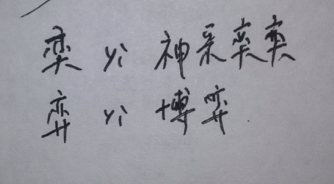 奕 yì 神采奕奕
弈 yì 博弈